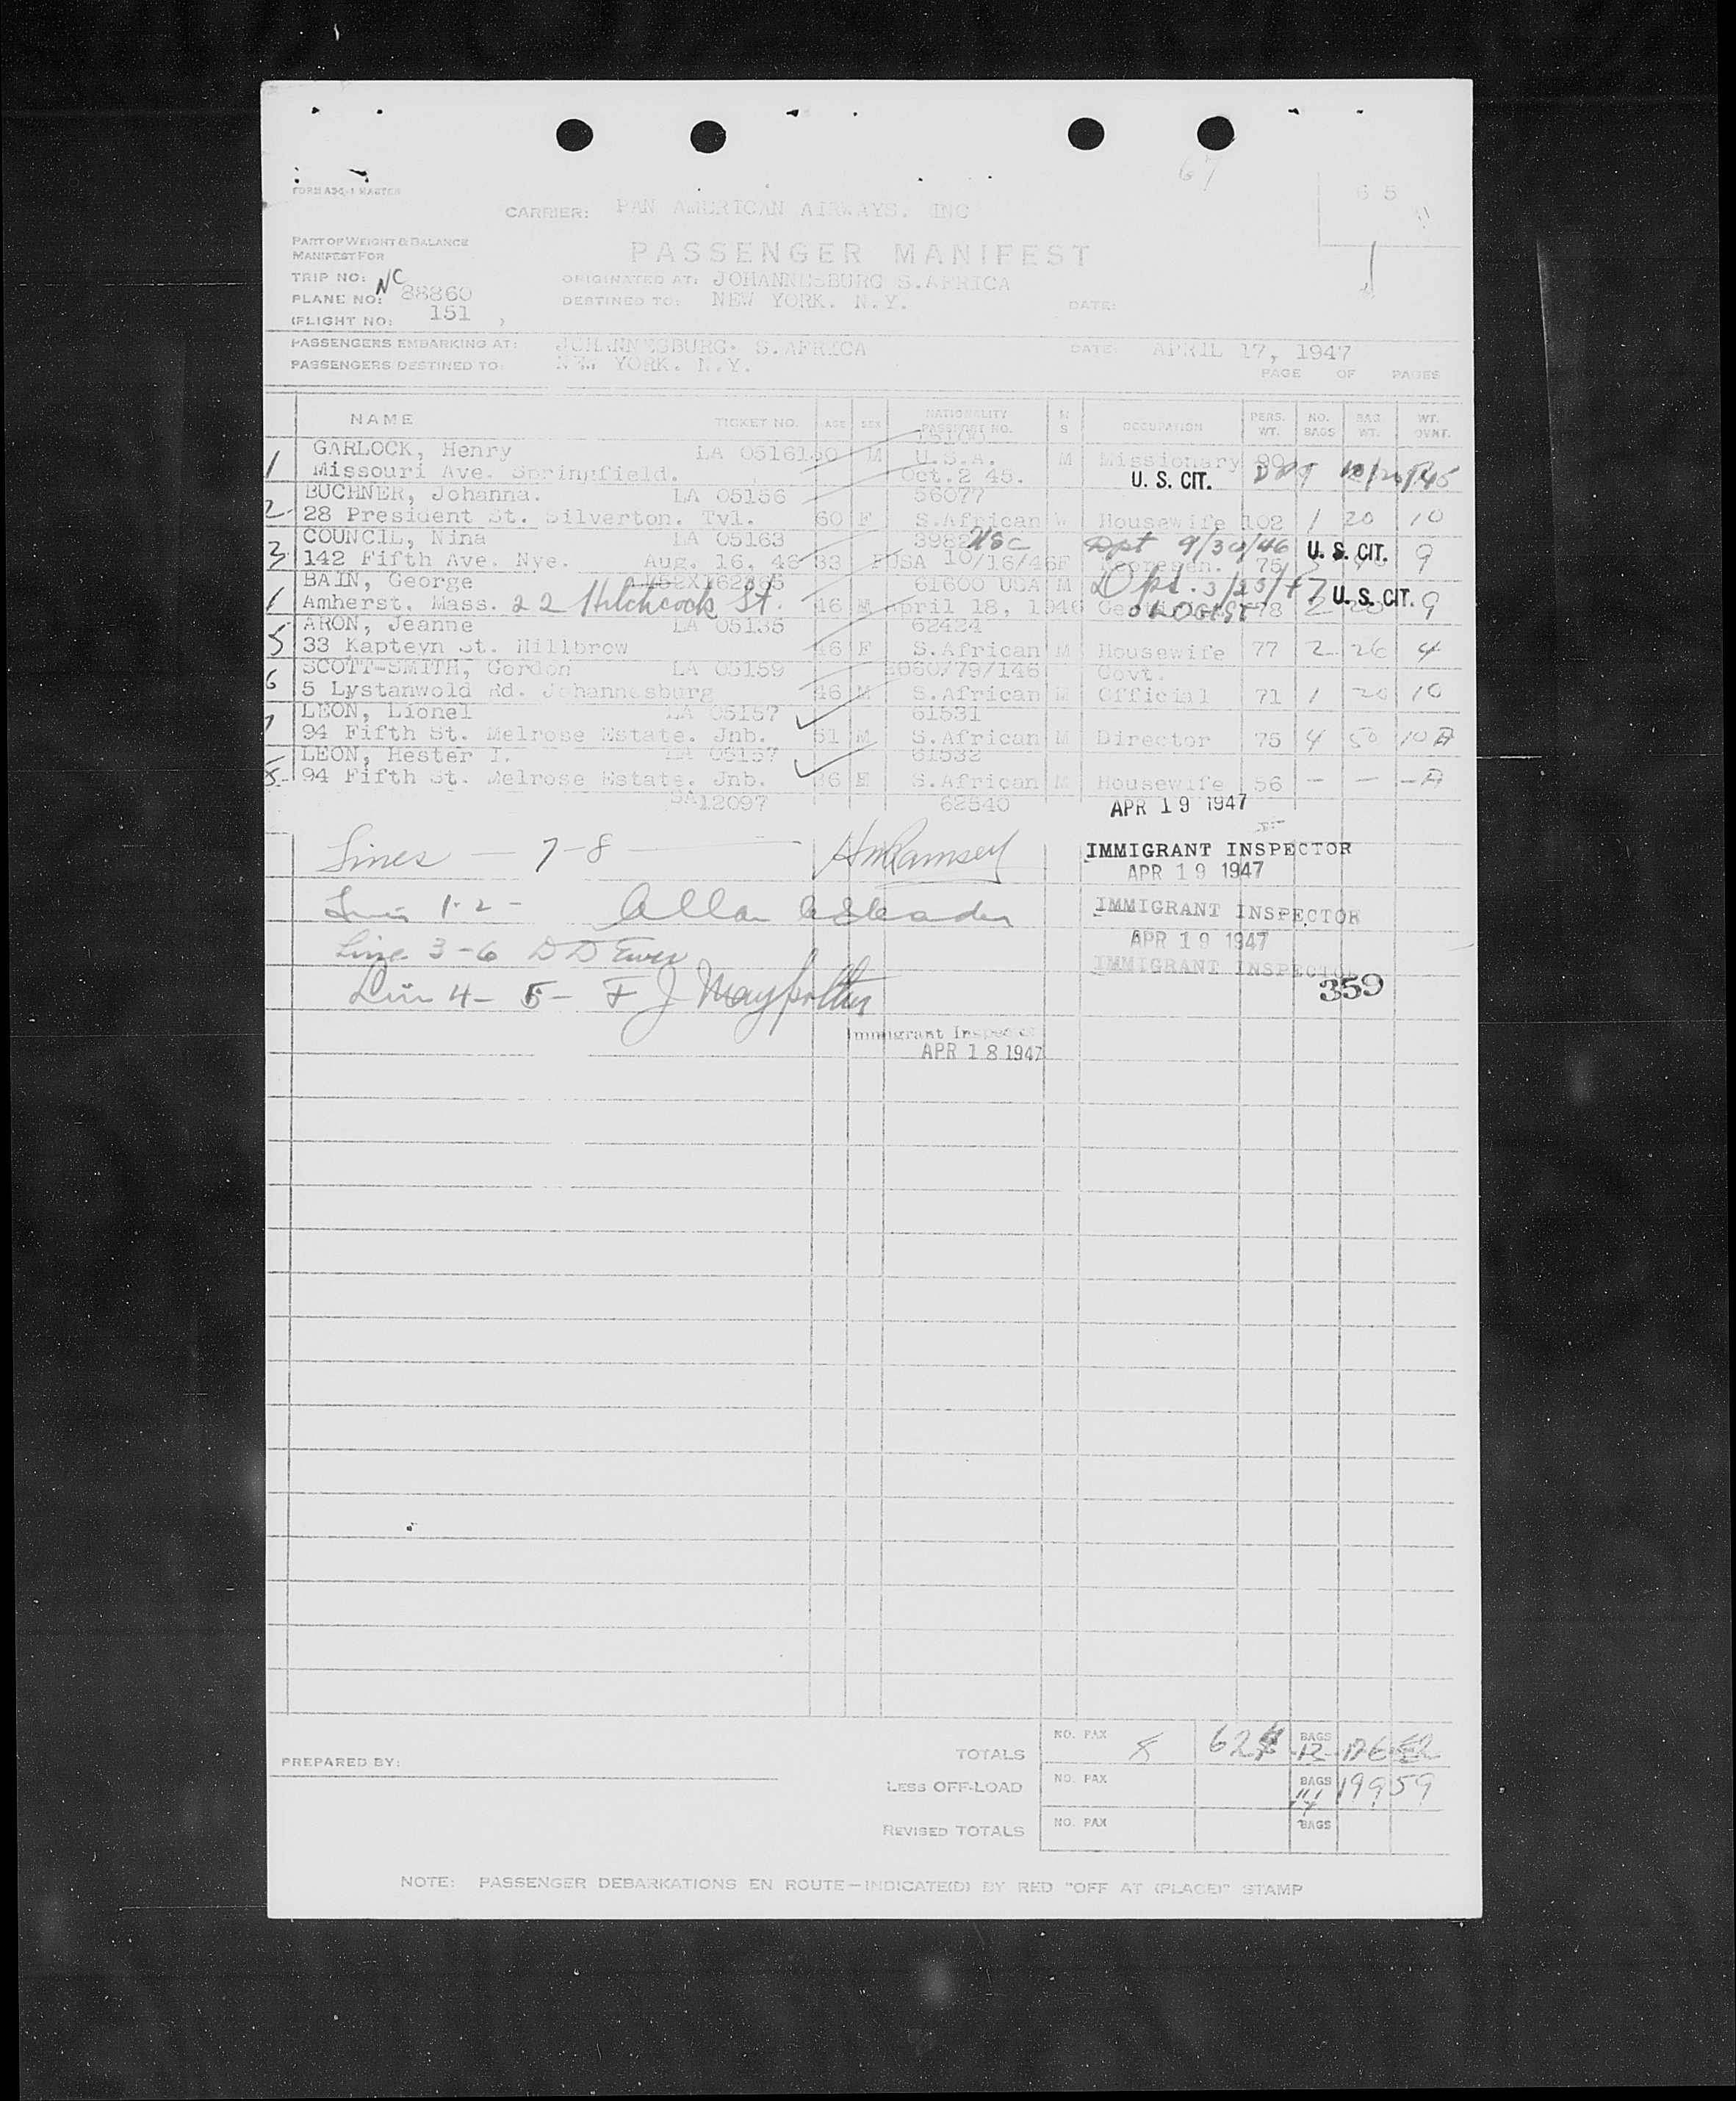 67
65
FORM ADQ-1 MASTER
CARRIER: PAN AMERICAN AIRWAYS. INC
PART OF WEIGHT & BALANCE
MANIFEST FOR
PASSENGER MANIFEST
TRIP NO:
ORIGINATED AT: JOHANNESBURG S.AFRICA
PLANE NO: NC 88860
DESTINED TO: NEW YORK. N.Y. DATE:
(FLIGHT NO: 151 )
PASSENGERS EMBARKING AT: JOHANNESBURG. S.AFRICA DATE APRIL 17, 1947
PASSENGERS DESTINED TO: NEW YORK. N.Y. PAGE OF PAGES
NAME TICKET NO. AGE SEX NATIONALITY PASSPORT NO. M S OCCUPATION PERS. WT. NO. BAGS BAG WT. WT. OVNT.
15100
1 GARLOCK, Henry LA 05161 50 M U.S.A. M Missionary 90
Missouri Ave. Springfield. Oct.2 45. U. S. CIT.
BUCHNER, Johanna. LA 05156 56077
2 28 President St. Silverton. Tvl. 60 F S.African W Housewife 102 1 20 10
COUNCIL, Nina LA 05163 3982 USC Dpt 9/30/46 U. S. CIT.
3 142 Fifth Ave. Nye. Aug. 16, 46 33 F USA 10/16/46 F Represen. 75 9
BAIN, George 61600 USA M Dpt. 3/25/47 U. S. CIT.
Amherst, Mass. 22 Hitchcock St. 46 M April 18, 1946 OLOGIST 78 2 9
ARON, Jeanne LA 05135 62424
5 33 Kapteyn St. Hillbrow 46 F S.African M Housewife 77 2 26 4
SCOTT-SMITH, Gordon LA 05159 3060/79/146 Govt.
6 5 Lystanwold Rd. Johannesburg 46 M S.African M Official 71 1 20 10
LEON, Lionel LA 05157 61531
7 94 Fifth St. Melrose Estate. Jnb. 51 M S.African M Director 75 4 50 10 A
LEON, Hester I. LA 05157 61532
8 94 Fifth St. Melrose Estate. Jnb. 36 S.African M Housewife 56 - - - A
SA12097 62540 APR 19 1947
Lines - 7-8 HMRamsey IMMIGRANT INSPECTOR
APR 19 1947
Lines 1-2 - IMMIGRANT INSPECTOR
APR 19 1947
Line 3-6 IMMIGRANT INSPECTOR
359
Line 4- 5- F J
Immigrant Inspector
APR 18 1947
TOTALS NO. PAX 8 624 BAGS 12
PREPARED BY:
LESS OFF-LOAD NO. PAX BAGS 14 199 59
REVISED TOTALS NO. PAX BAGS
NOTE: PASSENGER DEBARKATIONS EN ROUTE—INDICATE(D) BY RED "OFF AT (PLACE)" STAMP